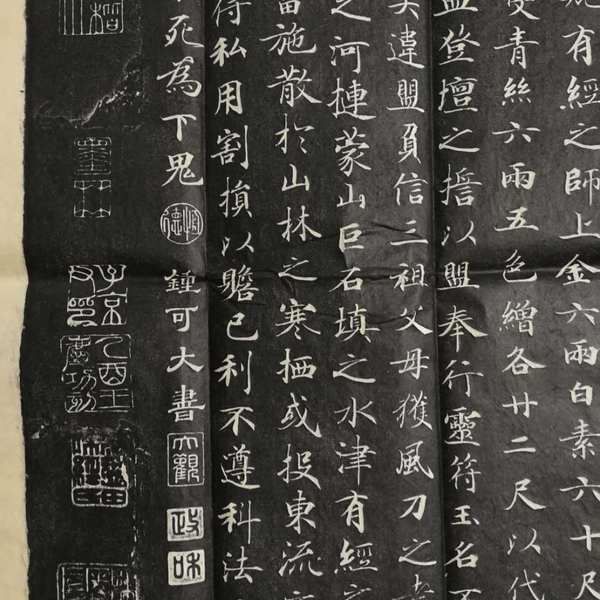 有經之師上金六兩白素六十尺
受青絲六兩五色繒各廿二尺以代
登壇之擔以盟奉行靈符玉名不
矣違盟負信三祖父母獲風刀之考
之河搥蒙山巨石填之水津有經之
施散於山林之寒栖或投東流
得私用割損以贍己利不遵科法
死為下鬼
鍾可大書 大觀 政和